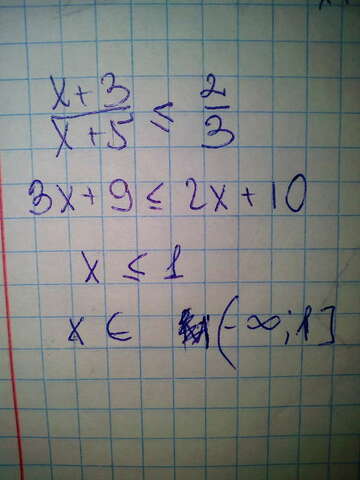 x+3/x+5 ≤ 2/3
3x+9 ≤ 2x+10
x ≤ 1
x ∈ (-∞;1]